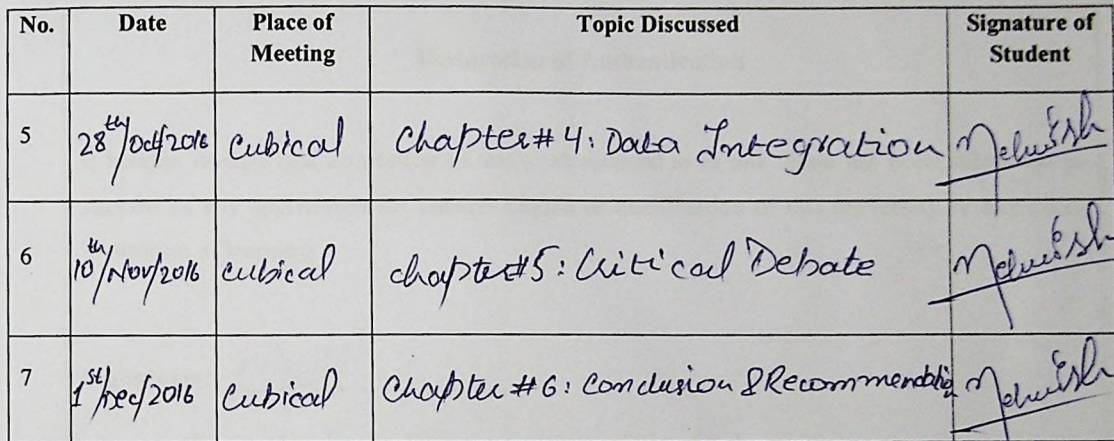 No. Date Place of Meeting Topic Discussed Signature of Student
5 28th/Oct/2016 Cubical Chapter# 4: Data Integration Mehwish
6 10th/Nov/2016 Cubical Chapter#5: Critical Debate Mehwish
7 1st/Dec/2016 Cubical Chapter #6: Conclusion & Recommendation Mehwish